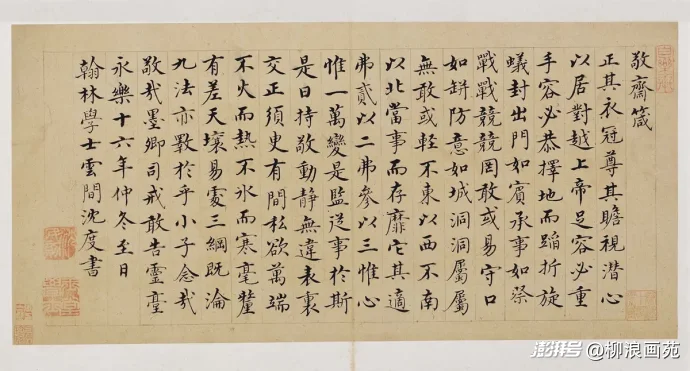 敬齋箴
正其衣冠尊其瞻視潛心
以居對越上帝足容必重
手容必恭擇地而蹈折旋
蟻封出門如賓承事如祭
戰戰兢兢罔敢或易守口
如缾防意如城洞洞屬屬
無敢或輕不東以西不南
以北當事而存靡它其適
弗貳以二弗參以三惟心
惟一萬變是監從事於斯
是曰持敬動靜無違表裏
交正須臾有間私欲萬端
不火而熱不氷而寒毫釐
有差天壤易處三綱既淪
九法亦斁於乎小子念哉
敬哉墨卿司戒敢告靈臺
永樂十六年仲冬至日
翰林學士雲間沈度書
澎湃号@柳浪画苑